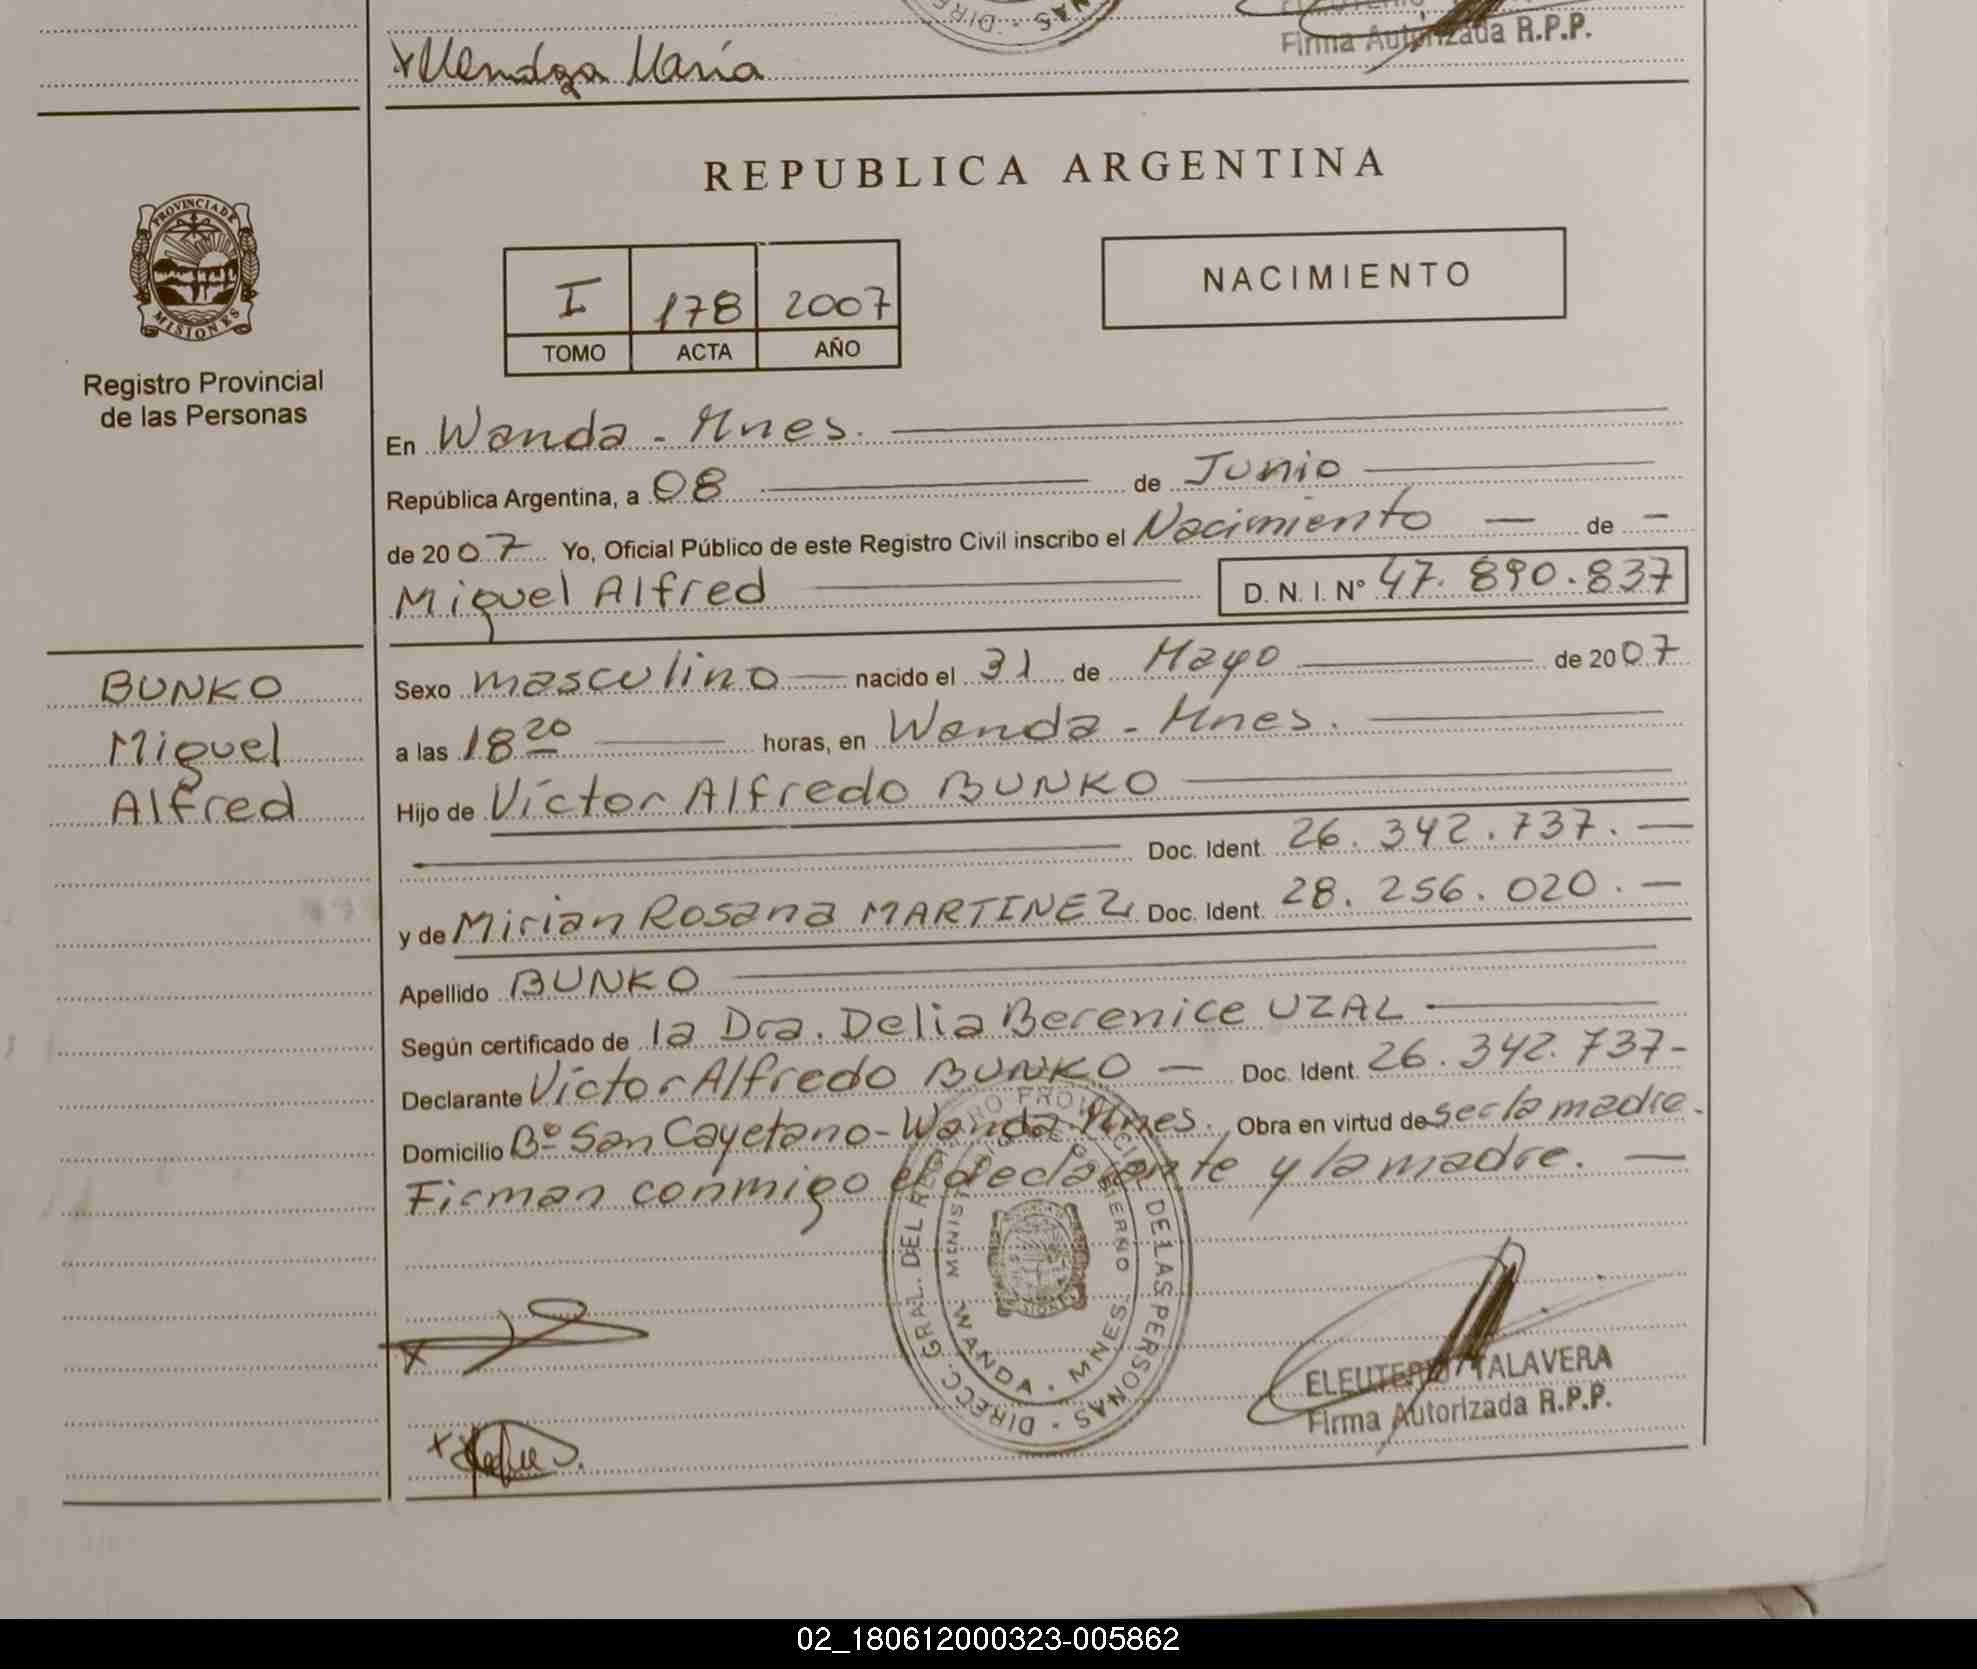 Mendoza María
Firma Autorizada R.P.P.
REPUBLICA ARGENTINA
PROVINCIA DE MISIONES
Registro Provincial
de las Personas
I 178 2007
TOMO ACTA AÑO
NACIMIENTO
En Wanda - Mnes.
República Argentina, a 08 de Junio
de 2007 Yo, Oficial Público de este Registro Civil inscribo el Nacimiento — de —
Miguel Alfred D. N. I. Nº 47.890.837
BUNKO
Miguel
Alfred
Sexo masculino — nacido el 31 de Mayo de 2007
a las 18 20 horas, en Wanda - Mnes.
Hijo de Víctor Alfredo BUNKO
Doc. Ident. 26.342.737.—
y de Mirian Rosana MARTINEZ Doc. Ident. 28.256.020.—
Apellido BUNKO
Según certificado de la Dra. Delia Berenice UZAL
Declarante Víctor Alfredo BUNKO — Doc. Ident. 26.342.737-
Domicilio Bº San Cayetano - Wanda Mnes. Obra en virtud de ser la madre.
Firman conmigo el declarante y la madre. —
DIRECC. GRAL. DEL REGISTRO PROVINCIAL DE LAS PERSONAS
MINISTERIO DE GOBIERNO
WANDA - MNES.
ELEUTERIO TALAVERA
Firma Autorizada R.P.P.
02_180612000323-005862